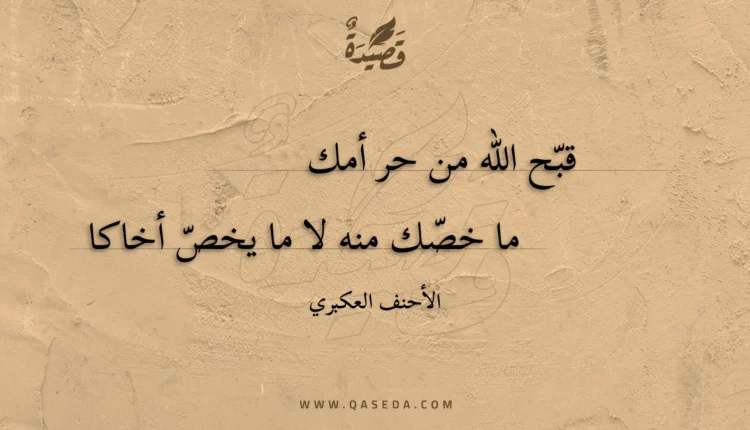 قَصِيْدَةٌ
قبّح الله من حر أمك
ما خصّك منه لا ما يخصّ أخاكا
الأحنف العكبري
WWW.QASEDA.COM